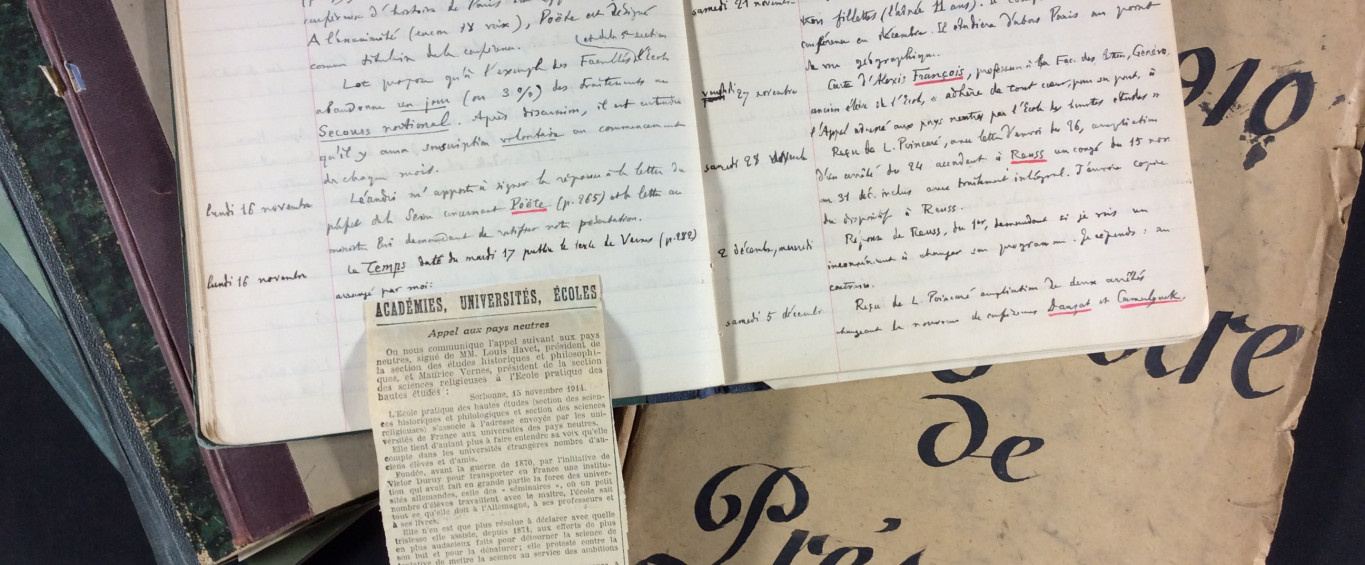 conférence d'histoire de Paris
A l'unanimité (encore 18 voix), Poëte est désigné
comme titulaire de la conférence.
(et de la 5e section
Lot propose qu'à l'exemple des Facultés l'Ecole
abandonne un jour (ou 3 %) des traitements au
Secours national. Après discussion, il est entendu
qu'il y aura souscription volontaire au commencement
de chaque mois.
lundi 16 novembre
Léandri m'apporte à signer la réponse à la lettre du
préfet de la Seine concernant Poëte (p. 265) et la lettre au
ministre lui demandant de ratifier notre présentation.
lundi 16 novembre
Le Temps daté du mardi 17 publie le texte de Vernes (p. 282)
arrangé par moi:
ACADÉMIES, UNIVERSITÉS, ÉCOLES
Appel aux pays neutres
On nous communique l'appel suivant aux pays
neutres, signé de MM. Louis Havet, président de
la section des études historiques et philosophi-
ques, et Maurice Vernes, président de la section
des sciences religieuses à l'Ecole pratique des
hautes études :
Sorbonne, 15 novembre 1914.
L'Ecole pratique des hautes études (section des scien-
ces historiques et philologiques et section des sciences
religieuses) s'associe à l'adresse envoyée par les uni-
versités de France aux universités des pays neutres.
Elle tient d'autant plus à faire entendre sa voix qu'elle
compte dans les universités étrangères nombre d'an-
ciens élèves et d'amis.
Fondée, avant la guerre de 1870, par l'initiative de
Victor Duruy pour transporter en France une institu-
tion qui avait fait en grande partie la force des univer-
sités allemandes, celle des « séminaires », où un petit
nombre d'élèves travaillent avec le maître, l'école sait
tout ce qu'elle doit à l'Allemagne, à ses professeurs et
à ses livres.
Elle n'en est que plus résolue à déclarer avec quelle
tristesse elle assiste, depuis 1871, aux efforts de plus
en plus audacieux faits pour détourner la science de
son but et pour la dénaturer; elle proteste contre la
tentative de mettre la science au service des ambitions
samedi 21 novembre
trois fillettes (l'aînée 11 ans). Il
conférence en décembre. Il étudiera d'abord Paris au point
de vue géographique.
vendredi 27 novembre
Carte d'Alexis François, professeur à la Fac. des Lettres, Genève.
ancien élève de l'Ecole, « adhère de tout cœur, pour sa part, à
l'Appel adressé aux pays neutres par l'Ecole des hautes études »
samedi 28 novembre
Reçu de L. Poincaré, avec lettre d'envoi du 26, ampliation
d'un arrêté du 24 accordant à Reuss un congé du 15 nov
au 31 déc. inclus avec traitement intégral. J'envoie copie
du dispositif à Reuss.
2 décembre, mercredi
Réponse de Reuss, du 1er, demandant si je vois un
inconvénient à changer son programme. Je réponds : au
contraire.
samedi 5 décembre
Reçu de L. Poincaré ampliation de deux arrêtés
chargeant de nouveau de conférences Dauzat et Camerlynck.
1910
de
Prés